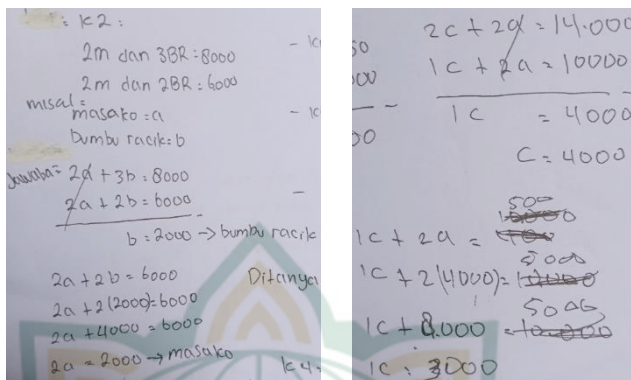 : K2 :
2m dan 3BR = 8000
2m dan 2BR = 6000
misal =
masako = a
bumbu racik = b
Jawaban = 2a + 3b = 8000
2a + 2b = 6000
b = 2000 → bumbu racik
2a + 2b = 6000
Ditanya
2a + 2(2000) = 6000
2a + 4000 = 6000
2a = 2000 → masako
K4
2c + 2a = 14.000
1c + 2a = 10000
1c = 4000
C = 4000
500
1c + 2a =
5000
1c + 2(4000) =
5000
1c + 8.000 =
1c = 3000